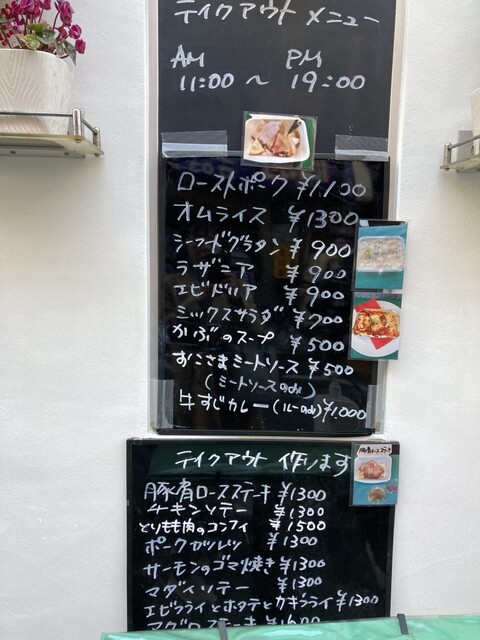 テイクアウト メニュー
AM PM
11:00 〜 19:00
ローストポーク ¥1,100
オムライス ¥1300
シーフードグラタン ¥900
ラザニア ¥900
エビドリア ¥900
ミックスサラダ ¥700
かぶのスープ ¥500
おこさまミートソース ¥500
(ミートソースのみ)
牛すじカレー(ルーのみ) ¥1,000
テイクアウト 作ります
豚肩ロースステーキ
豚肩ロースステーキ ¥1300
チキンソテー ¥1300
とりもも肉のコンフィ ¥1500
ポークカツレツ ¥1300
サーモンのゴマ焼き ¥1300
マダイソテー ¥1300
エビフライとホタテとカキフライ ¥1300
マグロステーキ ¥1600